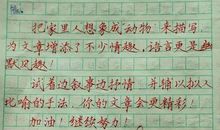 把家里人想象成动物来描写
为文章增添了不少情趣，语言更是幽
默风趣！
试着边叙事边抒情，并辅以拟人
比喻的手法，你的文章会更精彩！
加油！继续努力！